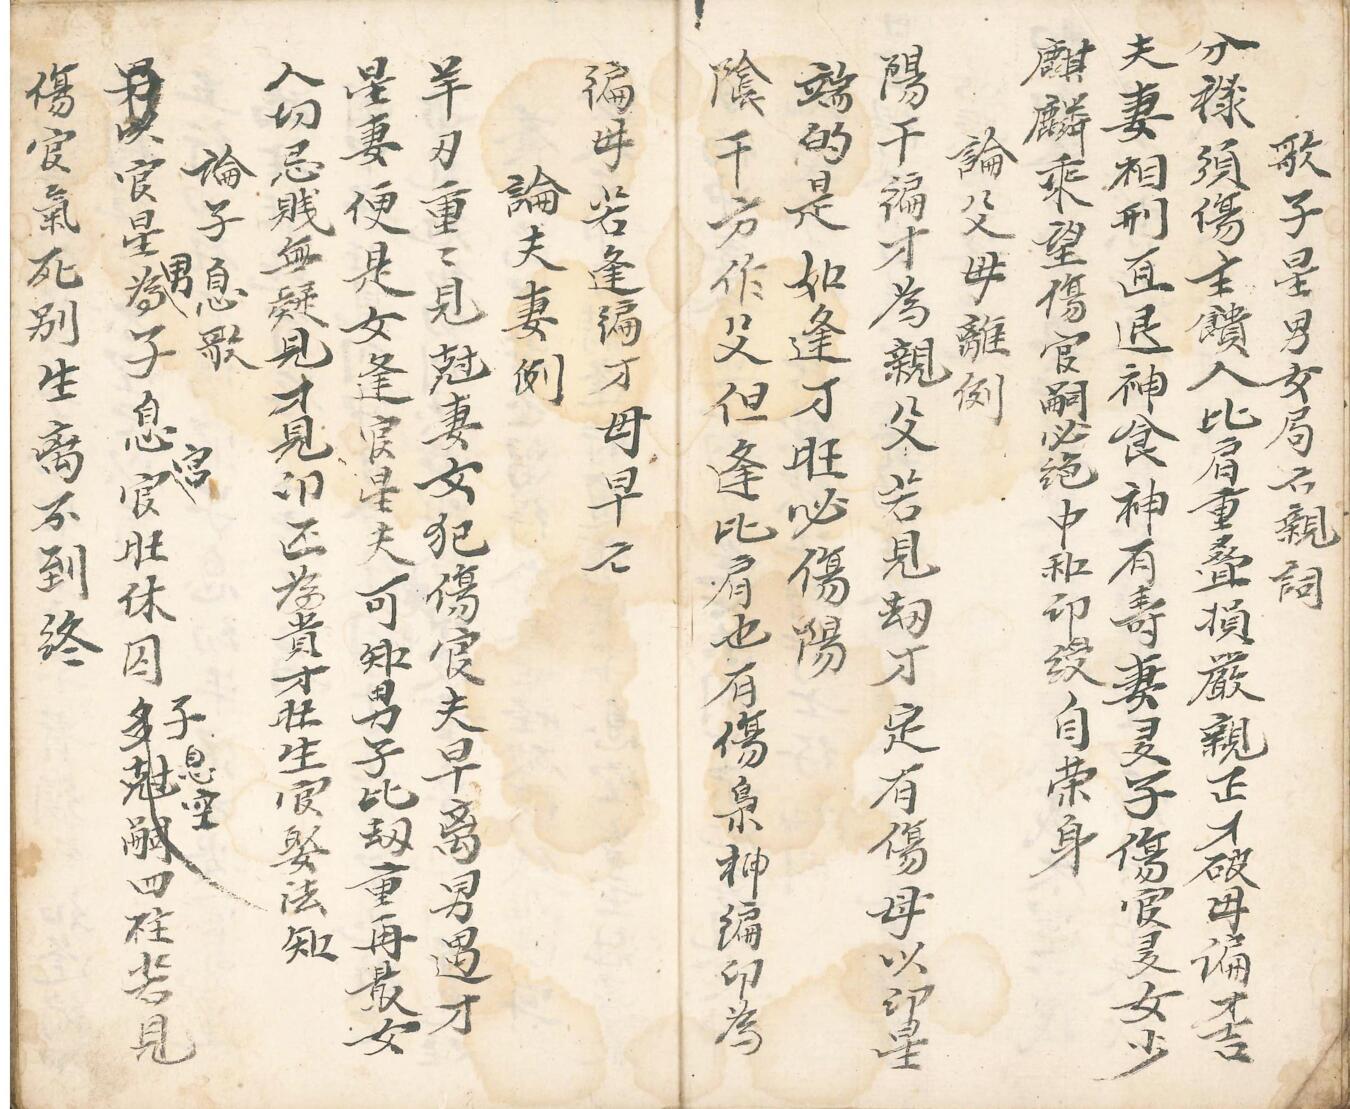 歌子星男女局六親詞
分祿須傷主饋人比肩重叠損嚴親正才破毋偏才吉
夫妻相刑直退神食神有壽妻叐子傷官叐女少
麒麟乘望傷官嗣必绝中和印绶自荣身
論父毋離例
陽干徧才為親父若見刼才定有傷毋以印星
端的是如逢才旺必傷陽
陰干方作父但逢比肩也有傷梟神徧印為
徧毋若逢徧才毋早亡
論夫妻例
羊刃重〻見尅妻女犯傷官夫早离男遇才
星妻便是女逢官星夫可知男子比刼重再娶女
人切忌賎無疑見才見印正為貴才旺生官娶法知
論子息歌
男以官星為子息官旺休囚多尅嗣四柱若見
男
宮
子息空
傷官氣死别生离不到终